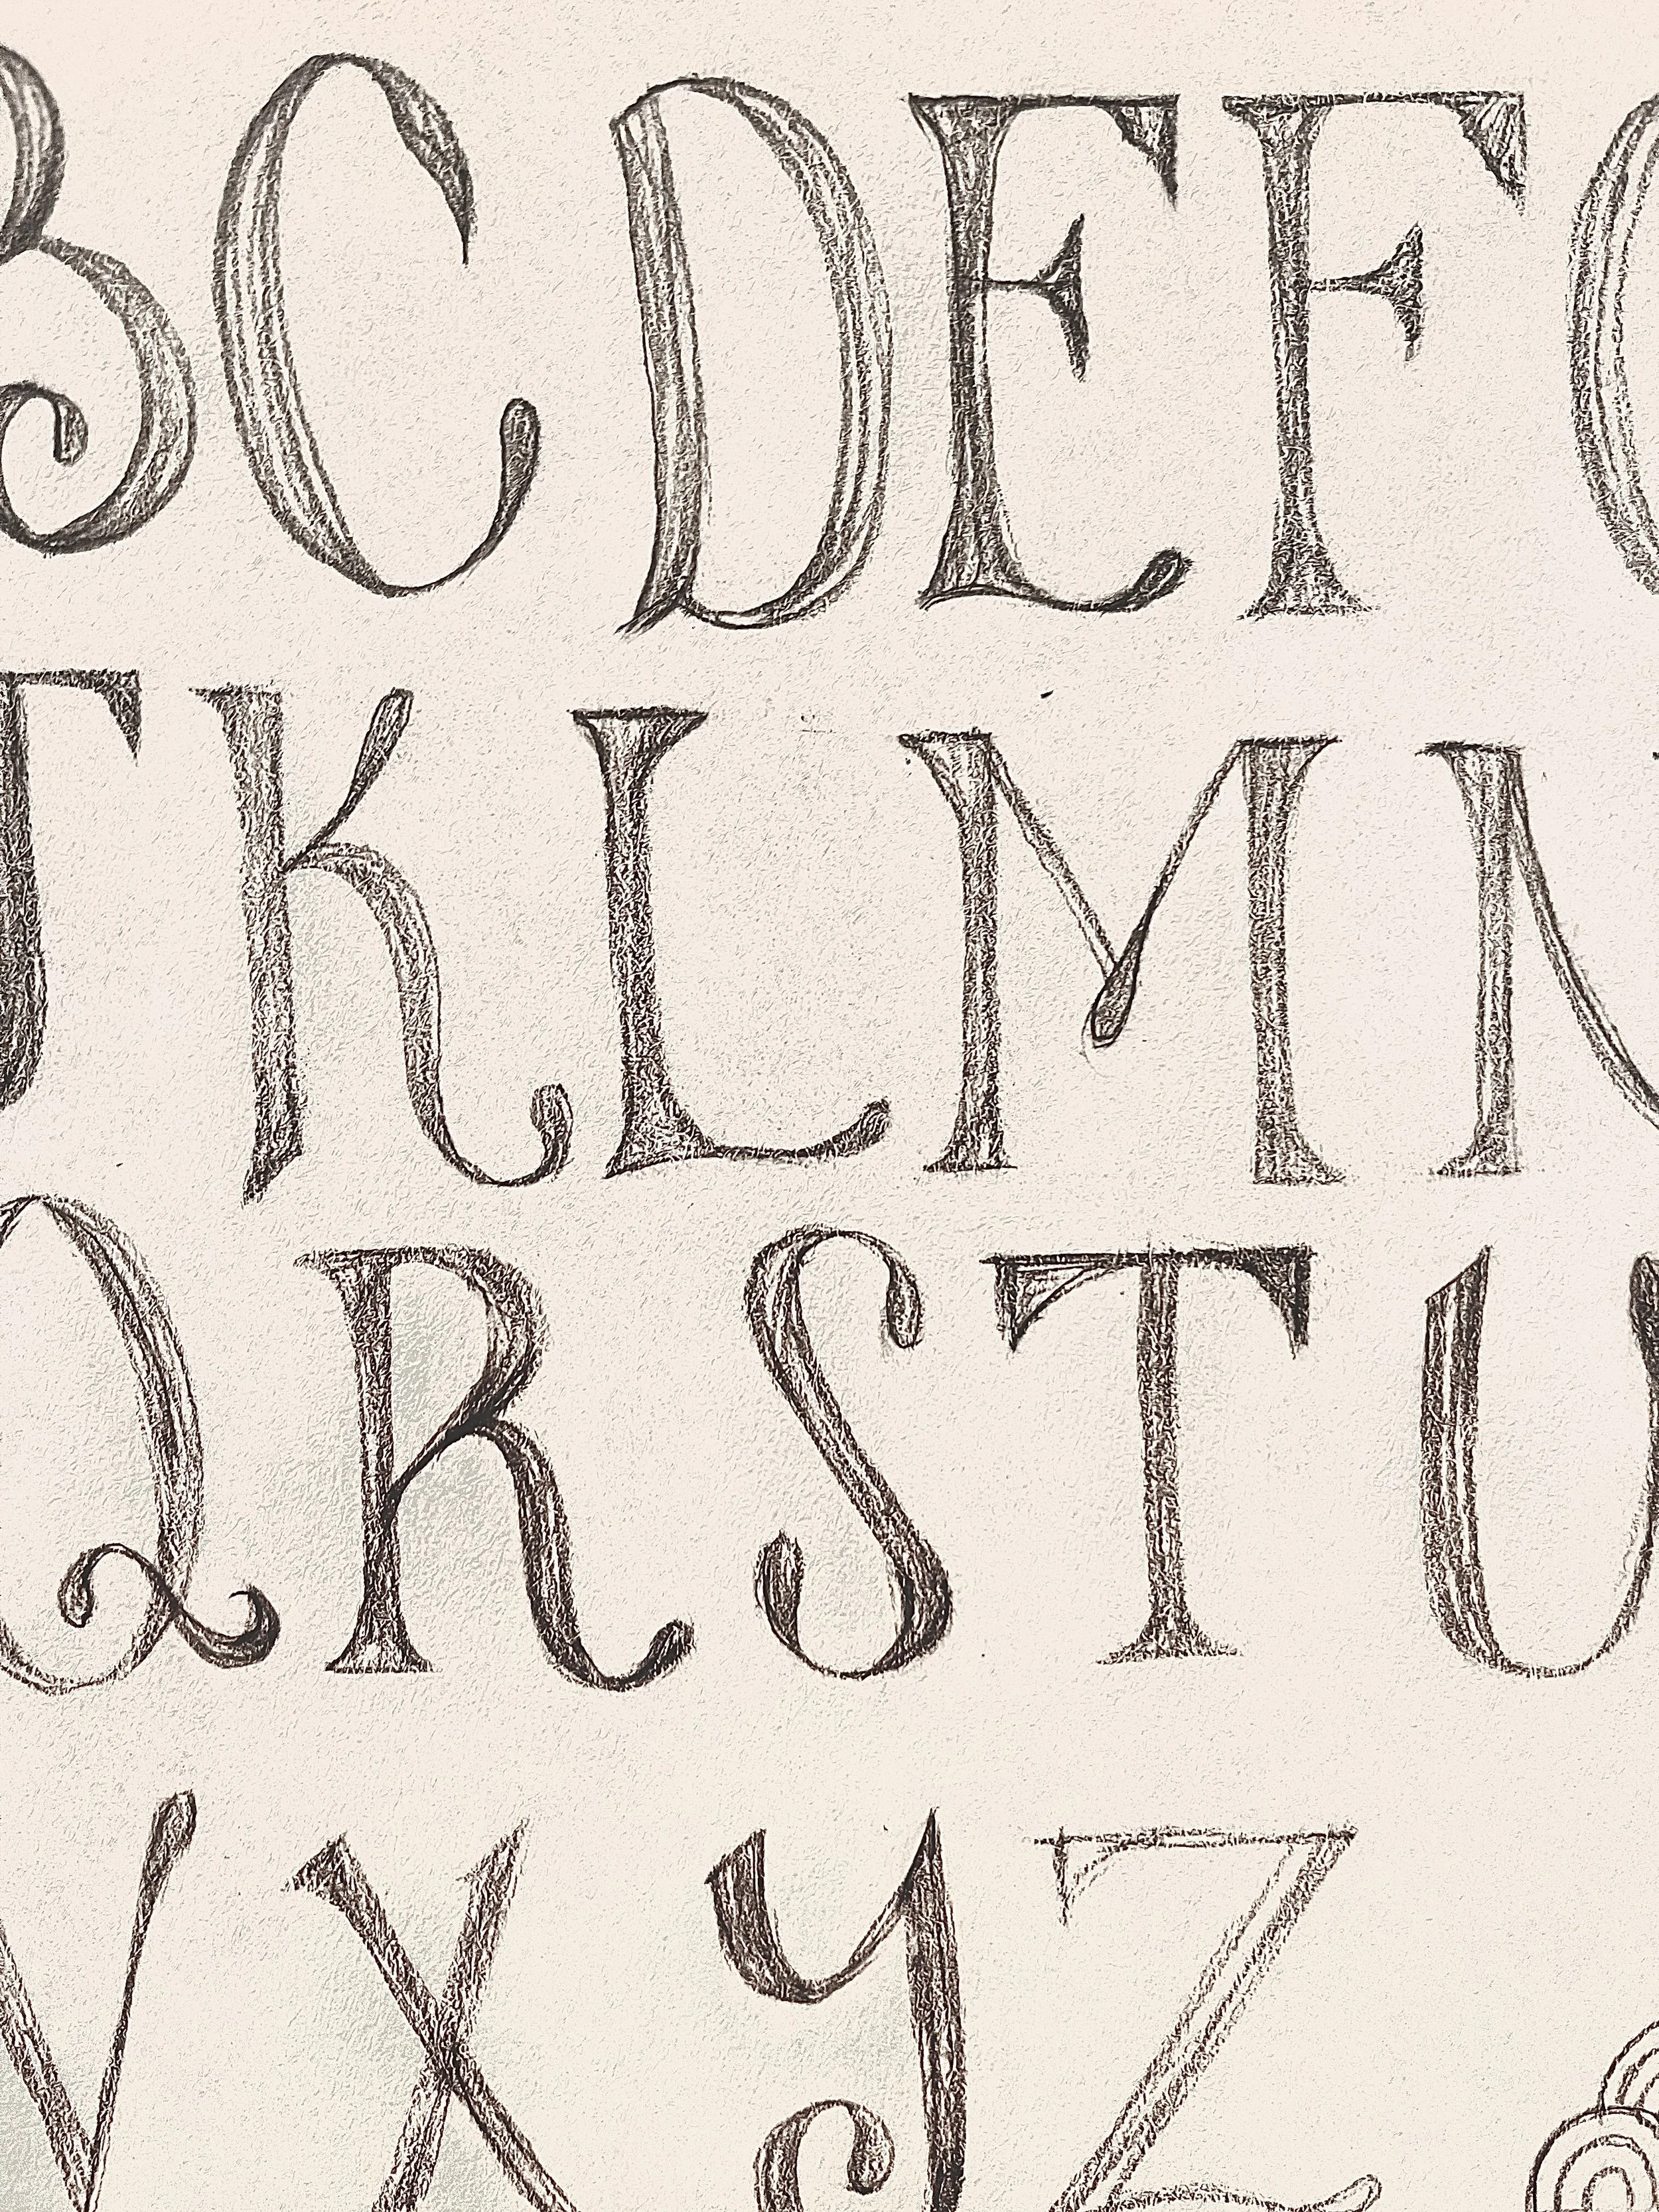 B C D E F G
J K L M N
Q R S T U
W X Y Z